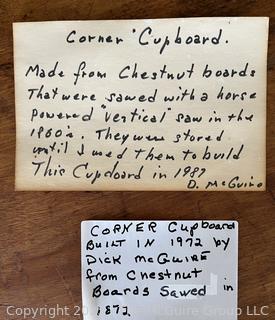 Corner Cupboard.
Made from Chestnut boards
That were sawed with a horse
powered "vertical" saw in the
1860's. They were stored
until I used them to build
This Cupboard in 1987
D. McGuire
CORNER Cupboard
BUILT IN 1972 by
DICK McGUIRE
from Chestnut
Boards Sawed in
1872
Copyright 20